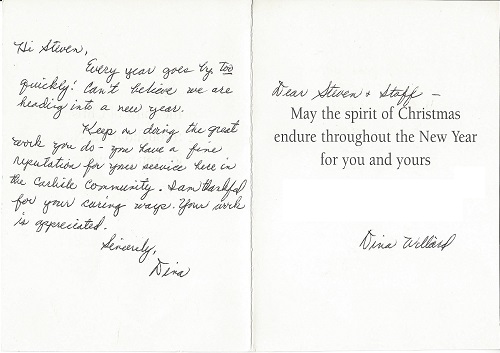 Hi Steven,
Every year goes by too
quickly! Can't believe we are
heading into a new year.
Keep on doing the great
work you do - you have a fine
reputation for your service here in
the Carlisle Community. I am thankful
for your caring ways. Your work
is appreciated.
Sincerely,
Dina
Dear Steven + Staff -
May the spirit of Christmas
endure throughout the New Year
for you and yours
Dina Willard